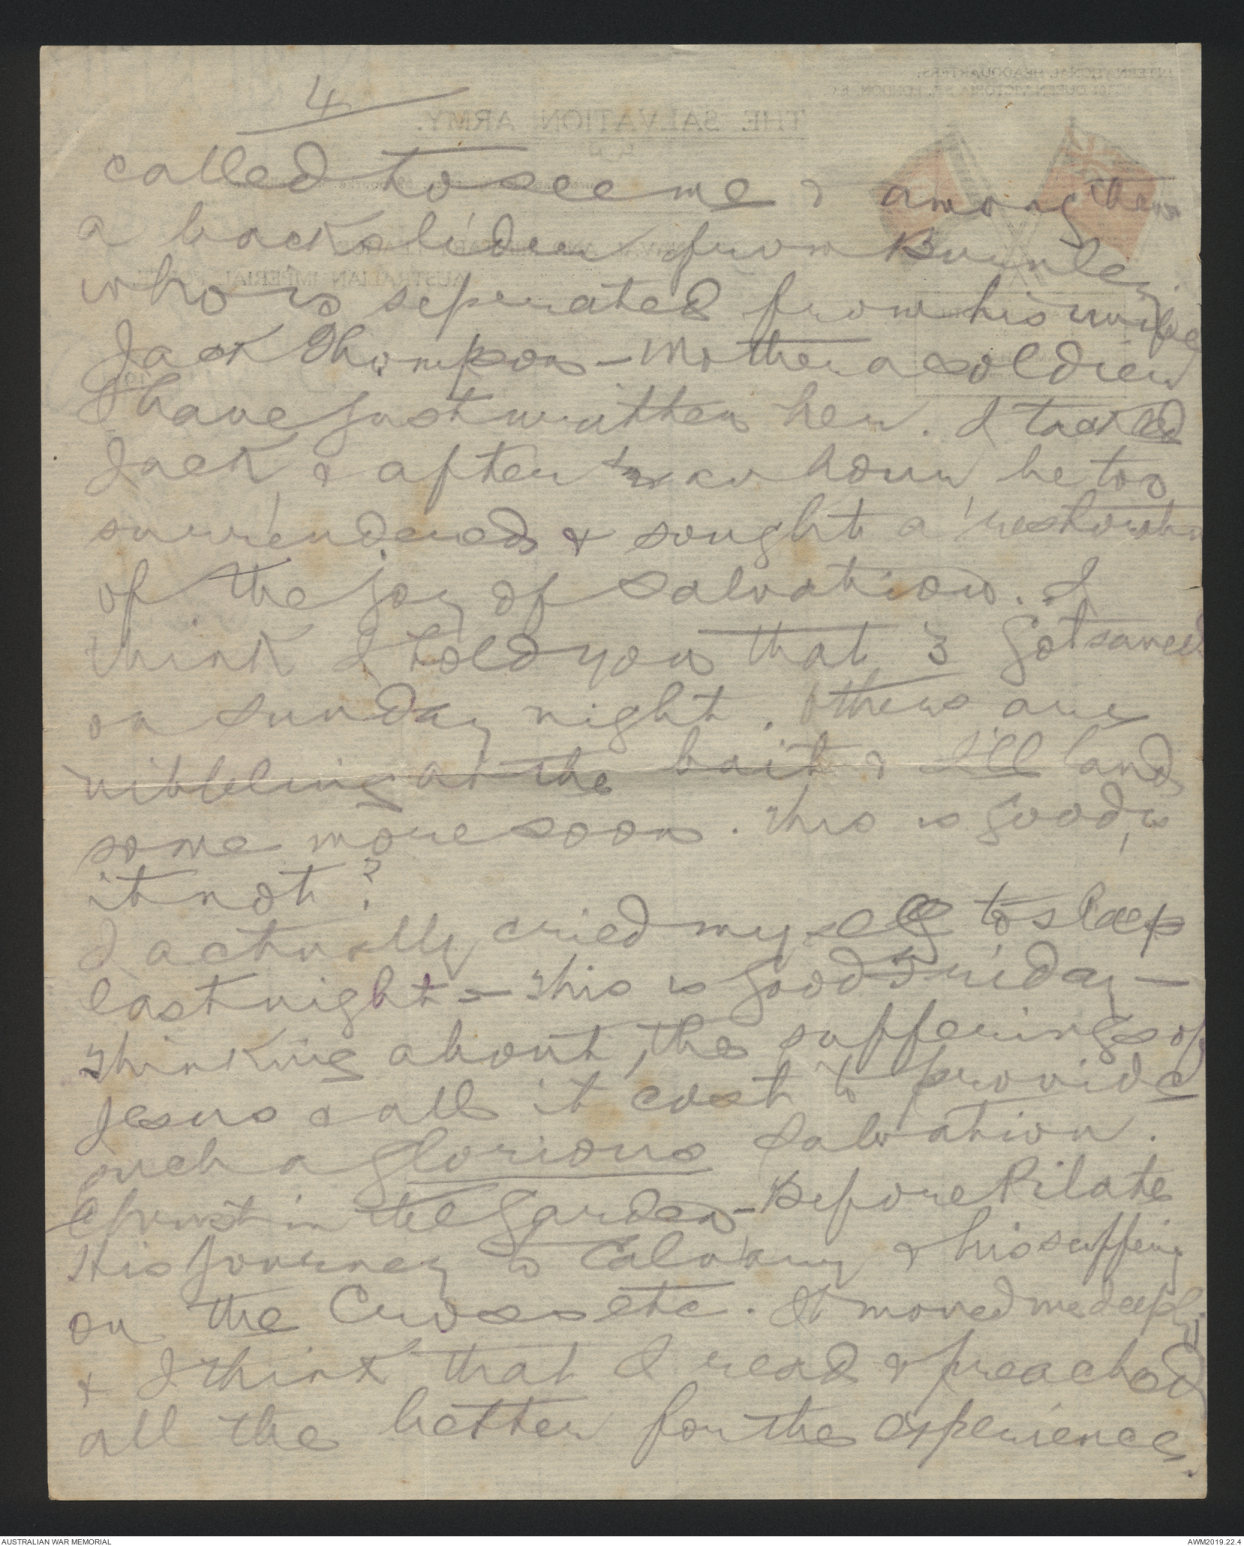 4
called to see me & among them
a backslider from Burnley
who is seperated from his wife
Jack Thompson - Mother a soldier
I have just written her. I tackled
Jack & after ½ an hour, he too
surrendered & sought a restoratn
of the joy of Salvation. I
think I told you that 3 Got saved
on Sunday night. Others are
nibbleing at the bait & I'll land
some more soon. This is good, is
it not?
I actually cried myself to sleep
last night - This is Good Friday -
Thinking about the sufferings of
Jesus & all it cost to provide
such a glorious Salvation.
Christ in the Garden - Before Pilate
His Journey to Calvary & his suffering
on the Cross etc. It moved me deeply
& I think that I read & preached
all the better for the experience.
THE SALVATION ARMY.
INTERNATIONAL HEADQUARTERS,
QUEEN VICTORIA ST. LONDON, E.C.
AUSTRALIAN IMPERIAL
AUSTRALIAN WAR MEMORIAL
AWM2019.22.4